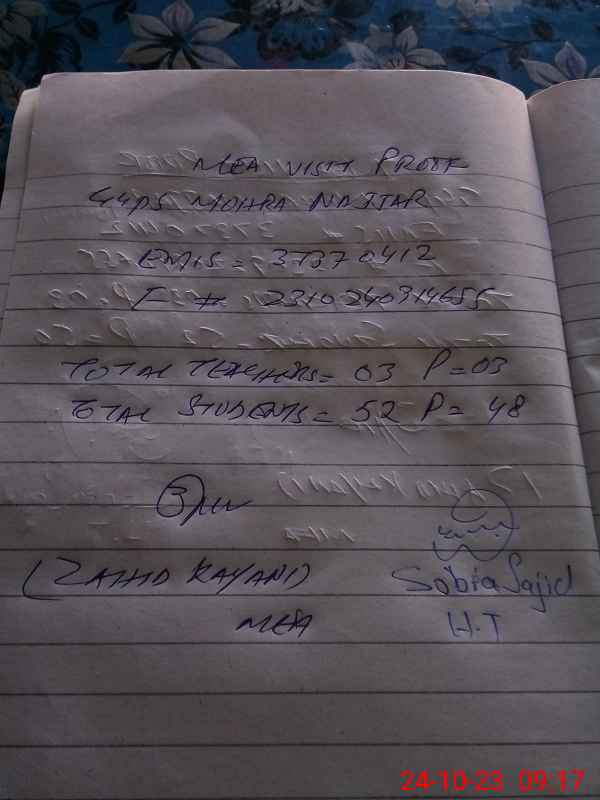 MEA VISIT PROOF
GGPS MOHRA NAJJAR
EMIS = 37370412
T # 2310240914655
TOTAL TEACHERS = 03 P = 03
TOTAL STUDENTS = 52 P = 48
(ZAHID KAYANI)
MEA
Sobia Sajid
H.T
24-10-23 09:17